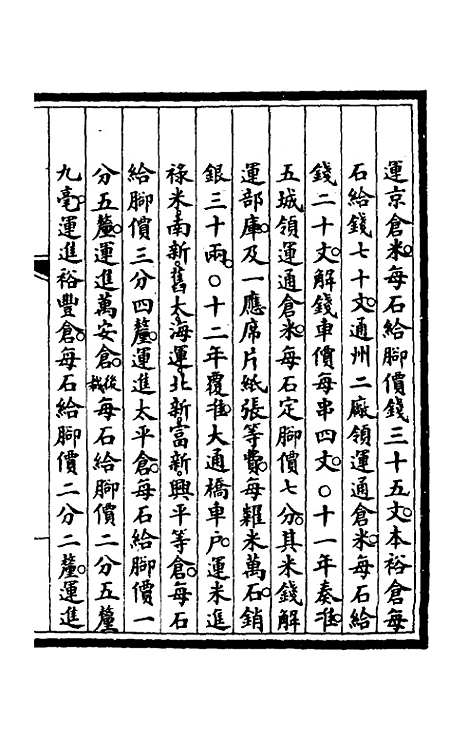 運京倉米。每石給腳價錢三十五文。本裕倉每
石給錢七十文。通州二廠領運通倉米。每石給
錢二十文。解錢車價每串四文。○十一年奏准。
五城領運通倉米。每石定腳價七分。其米錢解
運部庫。及一應席片紙張等費。每糶米萬石。銷
銀三十兩。○十二年覆准。大通橋車戶。運米進
祿米。南新。舊太。海運。北新。富新。興平等倉。每石
給腳價三分四釐。運進太平倉。每石給腳價一
分五釐。運進萬安倉。後裁每石給腳價二分五釐
九毫。運進裕豐倉。每石給腳價二分二釐。運進